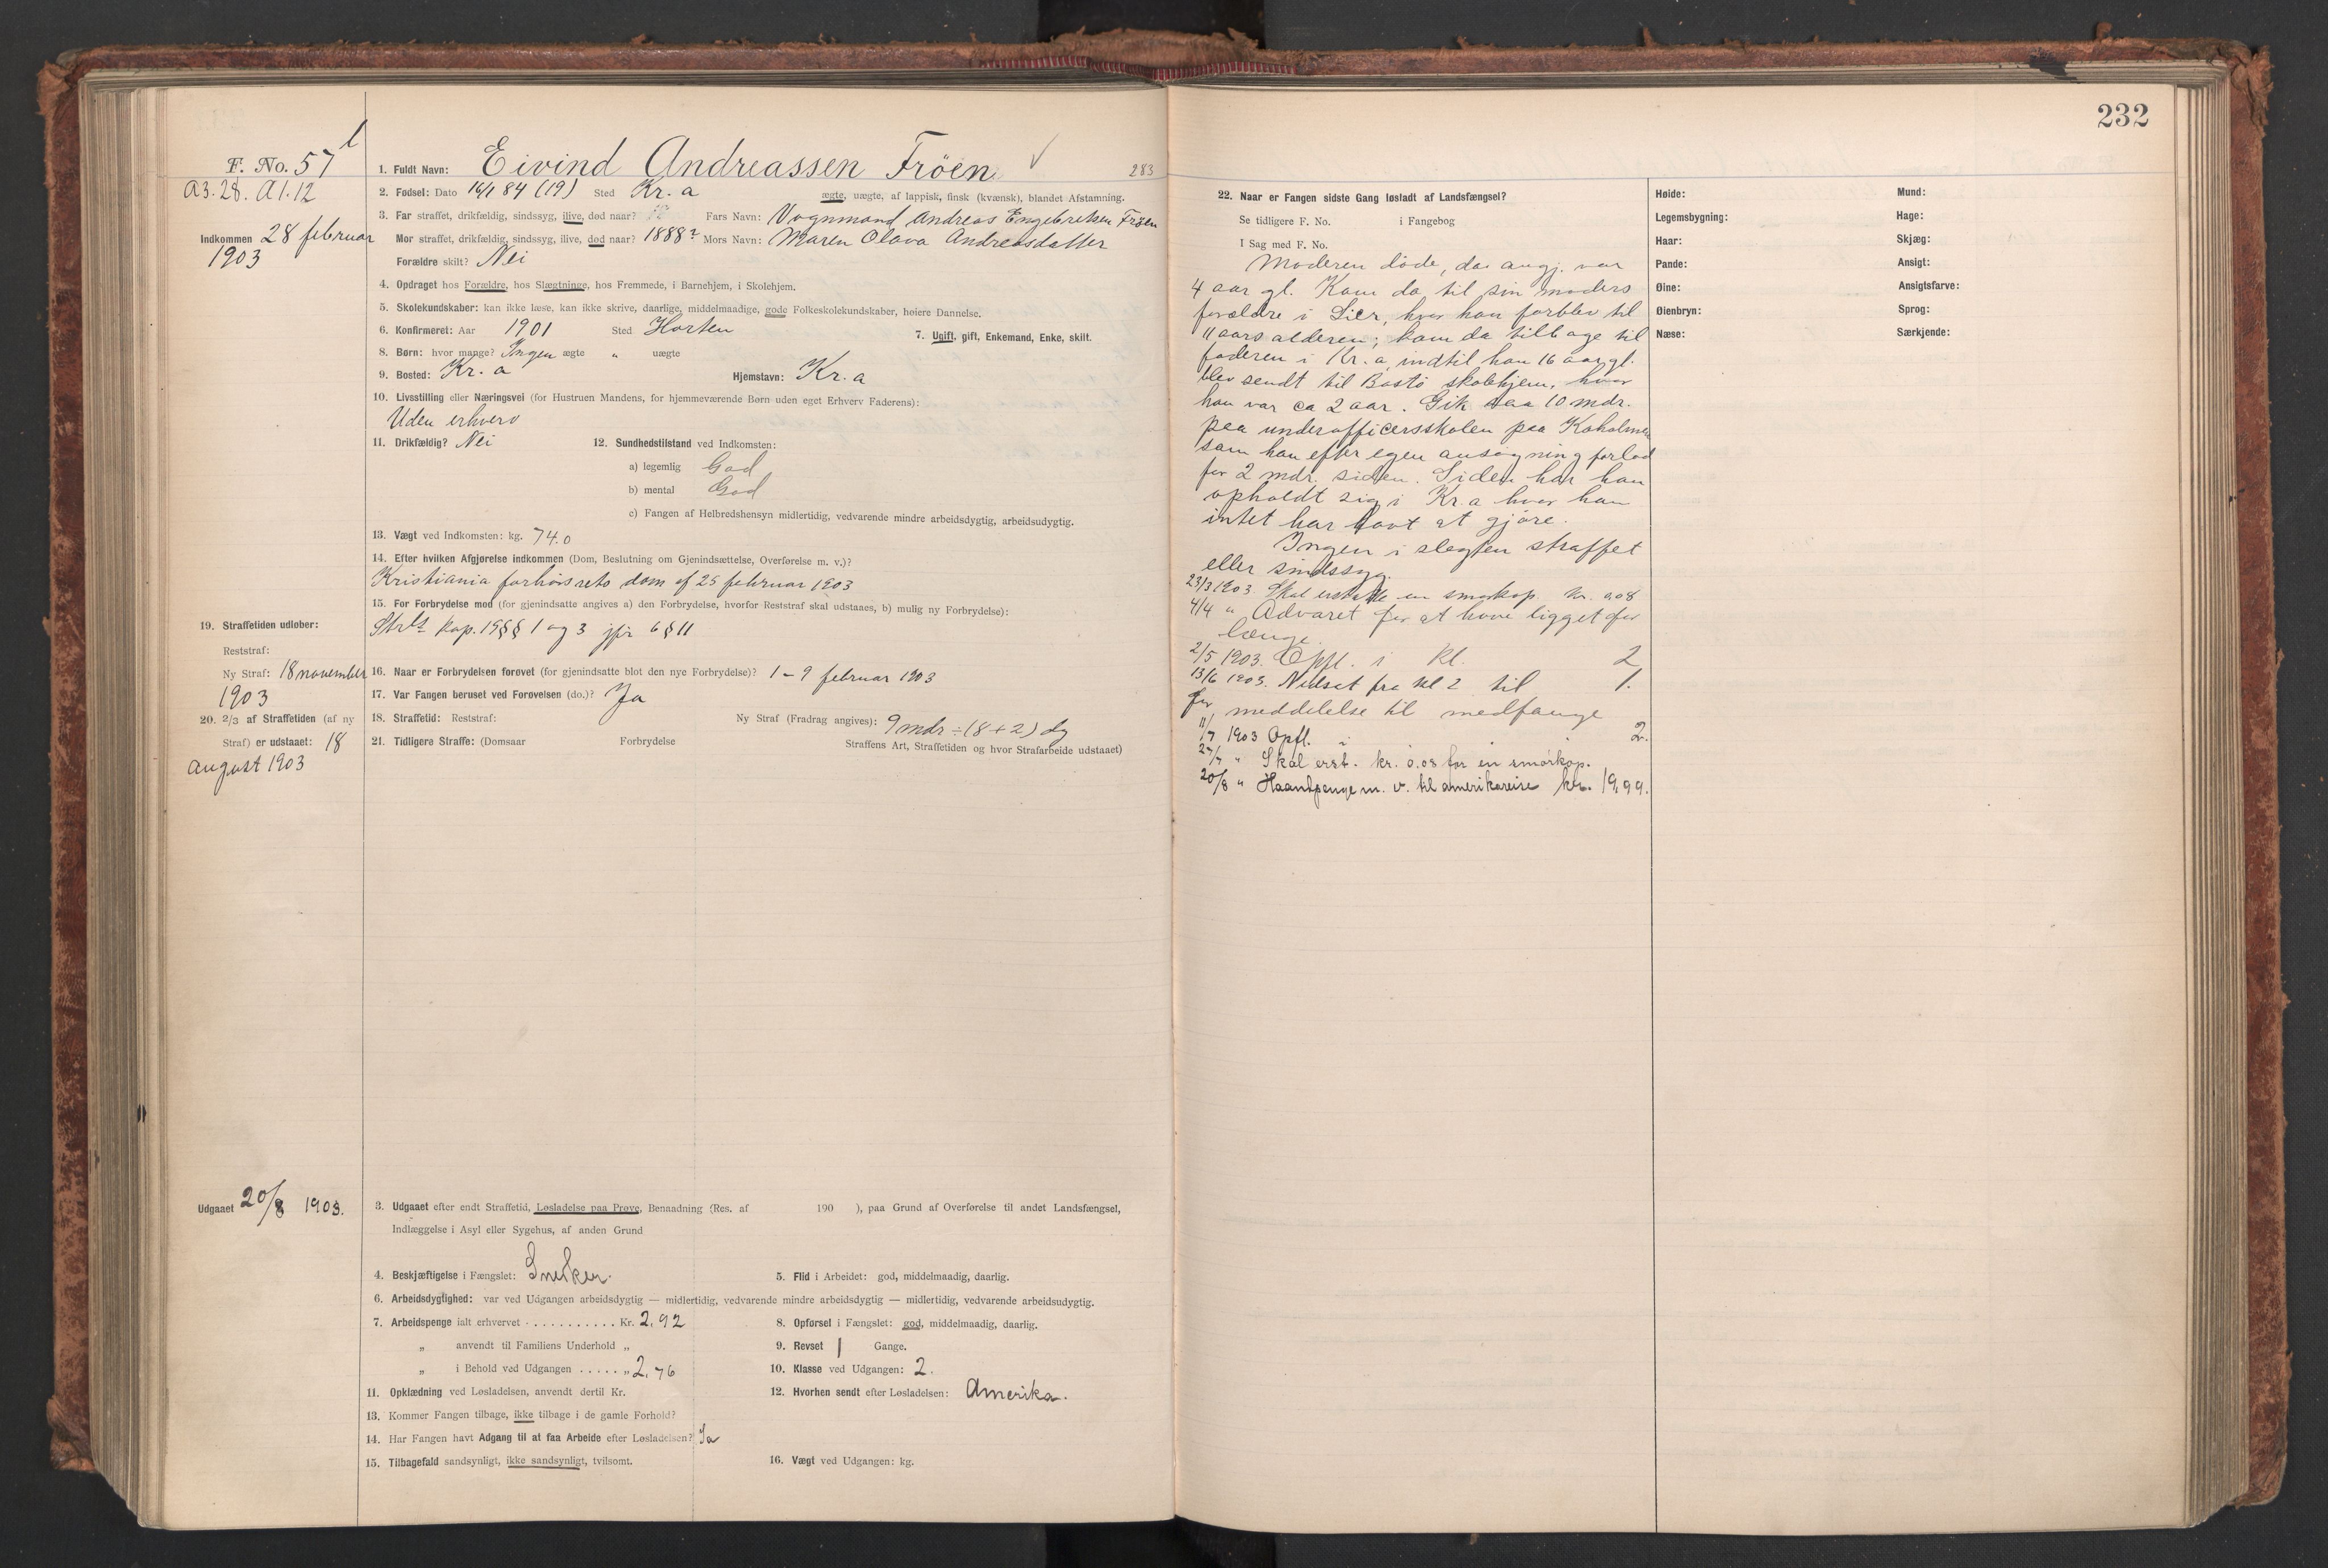 232
F. No. 57
A3.28. A1.12
Indkommen 28 februar
1903
1. Fuldt Navn: Eivind Andreassen Fröen
283
2. Fødsel: Dato 16/1 84 (19) Sted Kr.a ægte, uægte, af lappisk, finsk (kvænsk), blandet Afstamning.
3. Far straffet, drikfældig, sindssyg, ilive, død naar? Fars Navn: Vognmand Andreas Engebretsen Fröen
Mor straffet, drikfældig, sindssyg, ilive, død naar? 1888? Mors Navn: Maren Olava Andreasdatter
Forældre skilt? Nei
4. Opdraget hos Forældre, hos Slægtninge, hos Fremmede, i Barnehjem, i Skolehjem.
5. Skolekundskaber: kan ikke læse, kan ikke skrive, daarlige, middelmaadige, gode Folkeskolekundskaber, høiere Dannelse.
6. Konfirmeret: Aar 1901 Sted Horten 7. Ugift, gift, Enkemand, Enke, skilt.
8. Børn: hvor mange? Ingen ægte " uægte
9. Bosted: Kr.a Hjemstavn: Kr.a
10. Livsstilling eller Næringsvei (for Hustruen Mandens, for hjemmeværende Børn uden eget Erhverv Faderens):
Uden erhverv
11. Drikfældig? Nei 12. Sundhedstilstand ved Indkomsten:
a) legemlig God
b) mental God
c) Fangen af Helbredshensyn midlertidig, vedvarende mindre arbeidsdygtig, arbeidsudygtig.
13. Vægt ved Indkomsten: kg. 74.0
14. Efter hvilken Afgjørelse indkommen (Dom, Beslutning om Gjenindsættelse, Overførelse m. v.)?
Kristiania forhörsrets dom af 25 februar 1903
15. For Forbrydelse mod (for gjenindsatte angives a) den Forbrydelse, hvorfor Reststraf skal udstaaes, b) mulig ny Forbrydelse):
Strl kap. 19 §§ 1 og 3 jfr 6 § 11
19. Straffetiden udløber:
Reststraf:
Ny Straf: 18 november
1903
16. Naar er Forbrydelsen forøvet (for gjenindsatte blot den nye Forbrydelse)? 1 - 9 februar 1903
17. Var Fangen beruset ved Forøvelsen (do.)? Ja
20. 2/3 af Straffetiden (af ny
Straf) er udstaaet: 18
august 1903
18. Straffetid: Reststraf: Ny Straf (Fradrag angives): 9 mdr ÷ (8+2) dg
21. Tidligere Straffe: (Domsaar Forbrydelse Straffens Art, Straffetiden og hvor Strafarbeide udstaaet)
Udgaaet 20/8 1903.
3. Udgaaet efter endt Straffetid, Løsladelse paa Prøve, Benaadning (Res. af 190 ), paa Grund af Overførelse til andet Landsfængsel,
Indlæggelse i Asyl eller Sygehus, af anden Grund
4. Beskjæftigelse i Fængslet: Snekker. 5. Flid i Arbeidet: god, middelmaadig, daarlig.
6. Arbeidsdygtighed: var ved Udgangen arbeidsdygtig — midlertidig, vedvarende mindre arbeidsdygtig — midlertidig, vedvarende arbeidsudygtig.
7. Arbeidspenge ialt erhvervet . . . . . . . . . . . Kr. 2,92 8. Opførsel i Fængslet: god, middelmaadig, daarlig.
" anvendt til Familiens Underhold " 9. Revset 1 Gange.
" i Behold ved Udgangen . . . . . " 2,76 10. Klasse ved Udgangen: 2.
11. Opklædning ved Løsladelsen, anvendt dertil Kr. 12. Hvorhen sendt efter Løsladelsen: Amerika.
13. Kommer Fangen tilbage, ikke tilbage i de gamle Forhold?
14. Har Fangen havt Adgang til at faa Arbeide efter Løsladelsen? Ja
15. Tilbagefald sandsynligt, ikke sandsynligt, tvilsomt. 16. Vægt ved Udgangen: kg.
22. Naar er Fangen sidste Gang løsladt af Landsfængsel?
Se tidligere F. No. i Fangebog
I Sag med F. No.
Moderen döde, da angj. var
4 aar gl. Kom da til sin moders
forældre i Lier, hvor han forblev til
11 aars alderen; kom da tilbage til
faderen i Kr.a, indtil han 16 aar gl.
blev sendt til Bastö skolehjem, hvor
han var ca 2 aar. Gik saa 10 mdr.
paa underofficersskolen paa Kaholmen
som han efter egen ansögning forlod
for 2 mdr. siden. Siden har han
opholdt sig i Kr.a hvor han
intet har havt at gjöre.
Ingen i slegten straffet
eller sindssyg.
23/3 1903. Skal erstatte en smörkop. Kr. 0,08
4/4 " Advaret for at have ligget for
længe.
2/5 1903. Opfl. i kl. 2
13/6 1903. Nedsat fra kl 2 til 1.
for meddelelse til medfange
11/7 1903 Opfl. i 2.
27/7 " Skal erst. kr. 0.08 for en smörkop.
20/8 " Haandpenge m. v. til amerikareise kr. 19,99.
Høide:
Legemsbygning:
Haar:
Pande:
Øine:
Øienbryn:
Næse:
Mund:
Hage:
Skjæg:
Ansigt:
Ansigtsfarve:
Sprog:
Særkjende: